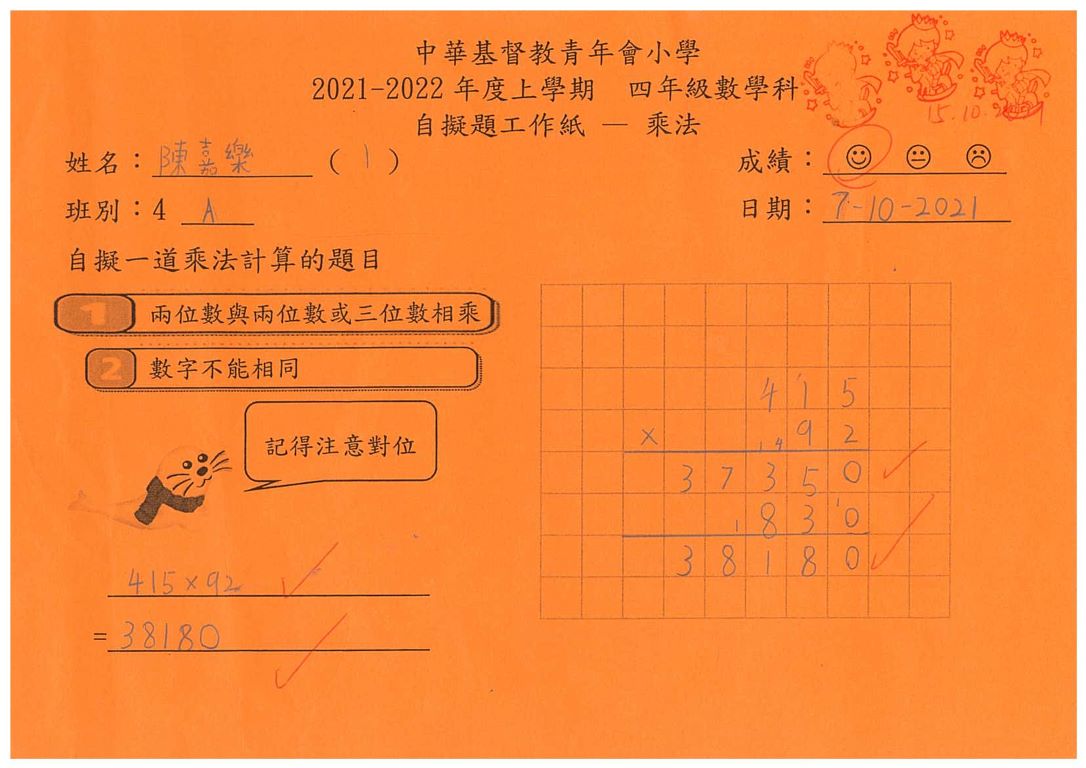 中華基督教青年會小學
2021-2022 年度上學期 四年級數學科
自擬題工作紙 — 乘法
15.10.2021
姓名：陳嘉樂 ( 1 )
成績：
班別：4 A
日期：7-10-2021
自擬一道乘法計算的題目
1 兩位數與兩位數或三位數相乘
2 數字不能相同
記得注意對位
4 1 5
× 9 2
3 7 3 5 0
8 3 0
3 8 1 8 0
415×92
= 38180